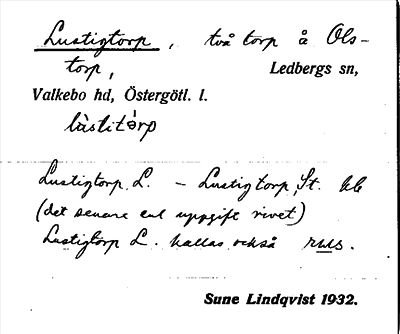 Lustigtorp, två torp å Ols-
torp, Ledbergs sn,
Valkebo hd, Östergötl. l.
Lustigtorp, L. – Lustigtorp, St.
(det senare enl uppgift rivet)
Lustigtorp L. kallas också
Sune Lindqvist 1932.